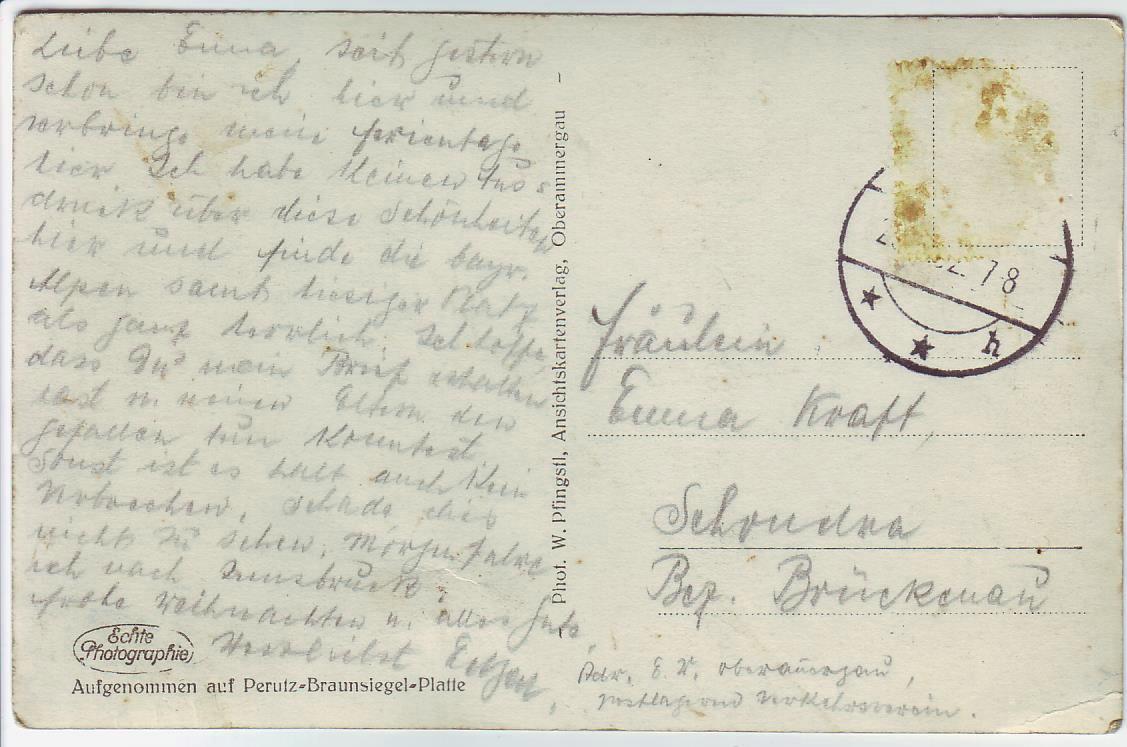 Liebe Emma, seit gestern
schon bin ich hier und
verbringe meine Ferientage
hier Ich habe keinen Aus
druck über diese Schönheiten
hier und finde die bayr.
Alpen samt hiesiger Platz
als ganz herrlich. Ich hoffe,
dass Du mein Brief erhalten
hast u. meinen Eltern den
gefallen tun konntest
Sonst ist es halt auch kein
Verbrechen. Schade dich
nicht zu sehen. Morgen fahre
ich nach Innsbruck.
Frohe Weihnachten u. alles Gute,
Herzlichst
Echte
Photographie
Aufgenommen auf Perutz-Braunsiegel-Platte
Phot. W. Pfingstl, Ansichtskartenverlag, Oberammergau
32. 7-8
h
Fräulein
Emma Kraft,
Schondra
Bez. Brückenau
Adr. E. Oberammergau,
postlagernd Verkehrsverein.